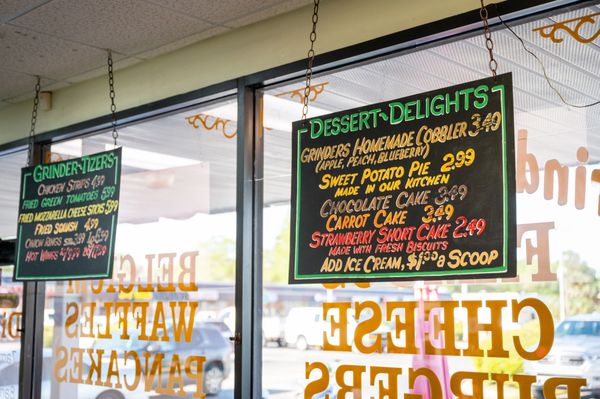 GRINDER-TIZERS
CHICKEN STRIPS 4.99
FRIED GREEN TOMATOES 3.99
FRIED MOZZARELLA CHEESE STICKS 5.99
FRIED SQUASH 4.99
ONION RINGS
HOT WINGS
DESSERT~DELIGHTS
GRINDERS HOMEMADE COBBLER 3.49
(APPLE, PEACH, BLUEBERRY)
SWEET POTATO PIE 2.99
MADE IN OUR KITCHEN
CHOCOLATE CAKE 3.49
CARROT CAKE 3.49
STRAWBERRY SHORT CAKE 2.49
MADE WITH FRESH BISCUITS
ADD ICE CREAM, $1.00 A SCOOP
BELGIUM
WAFFLES
PANCAKES
CHEESE
BURGERS